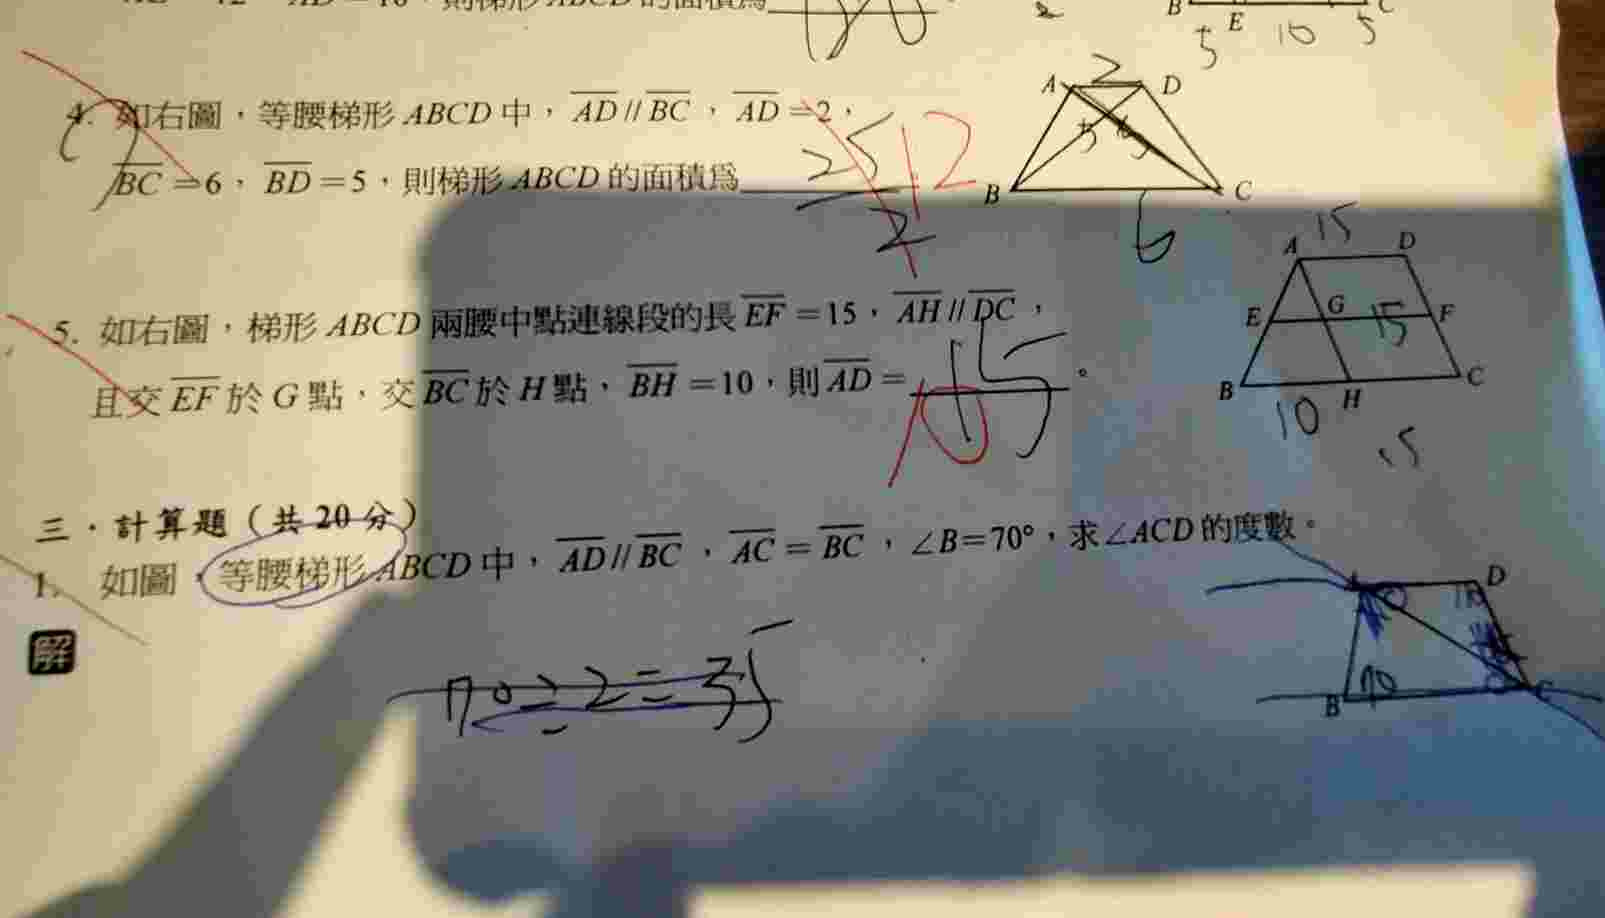 4. 如右圖，等腰梯形 ABCD 中，AD // BC，AD = 2，
BC = 6，BD = 5，則梯形 ABCD 的面積為
25
2
12
A 2 D
5
B C
6
5. 如右圖，梯形 ABCD 兩腰中點連線段的長 EF = 15，AH // DC，
且交 EF 於 G 點，交 BC 於 H 點，BH = 10，則 AD = 。
15
10
A 15 D
E G 15 F
B H C
10
15
三．計算題（共 20 分）
1. 如圖，等腰梯形 ABCD 中，AD // BC，AC = BC，∠B=70°，求∠ACD 的度數。
解
70÷2=35
D
B 70 C
B E C
5 10 5